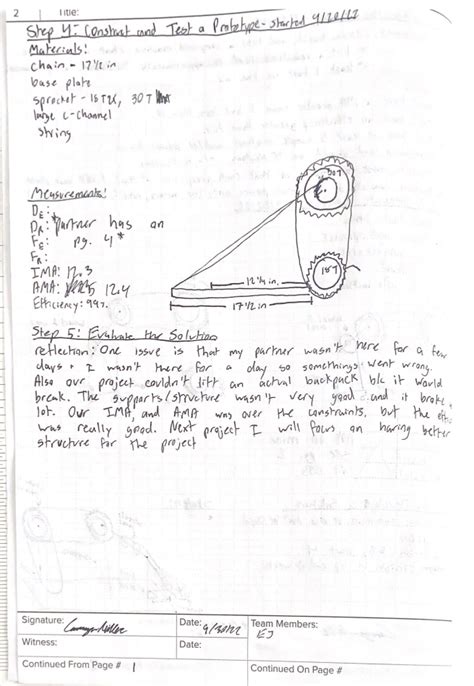 2 Title:
Step 4: Construct and Test a Prototype - started 9/20/22
Materials:
chain - 17 1/2 in
base plate
sprocket - 18T, 30T
large C-channel
string
30T
Measurements:
DE:
DR: *Partner has on
FE: pg. 4*
FR:
IMA: 12.3
AMA: 12.4
Efficiency: 99%
18T
12 1/4 in.
17 1/2 in
Step 5: Evaluate the Solution
reflection: One issue is that my partner wasn't here for a few
days + I wasn't there for a day so somethings went wrong.
Also our project couldn't lift an actual backpack b/c it would
break. The supports/structure wasn't very good and it broke a
lot. Our IMA, and AMA was over the constraints, but the
was really good. Next project I will focus on having better
structure for the project
Signature: Date: 9/30/22 Team Members:
EJ
Witness: Date:
Continued From Page # 1 Continued On Page #